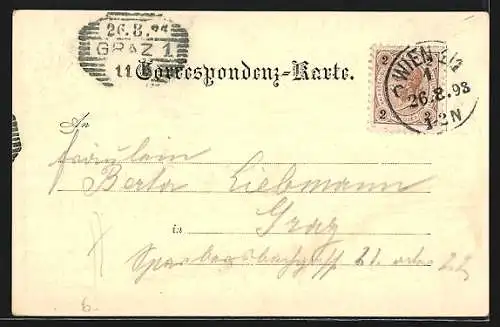 26.8.
GRAZ 1
11
Correspondenz-Karte.
2 2
WIEN
1
26.8.98
1-2N
2 2
An
Fräulein
Berta Liebmann
in Graz
21 oder 22
6